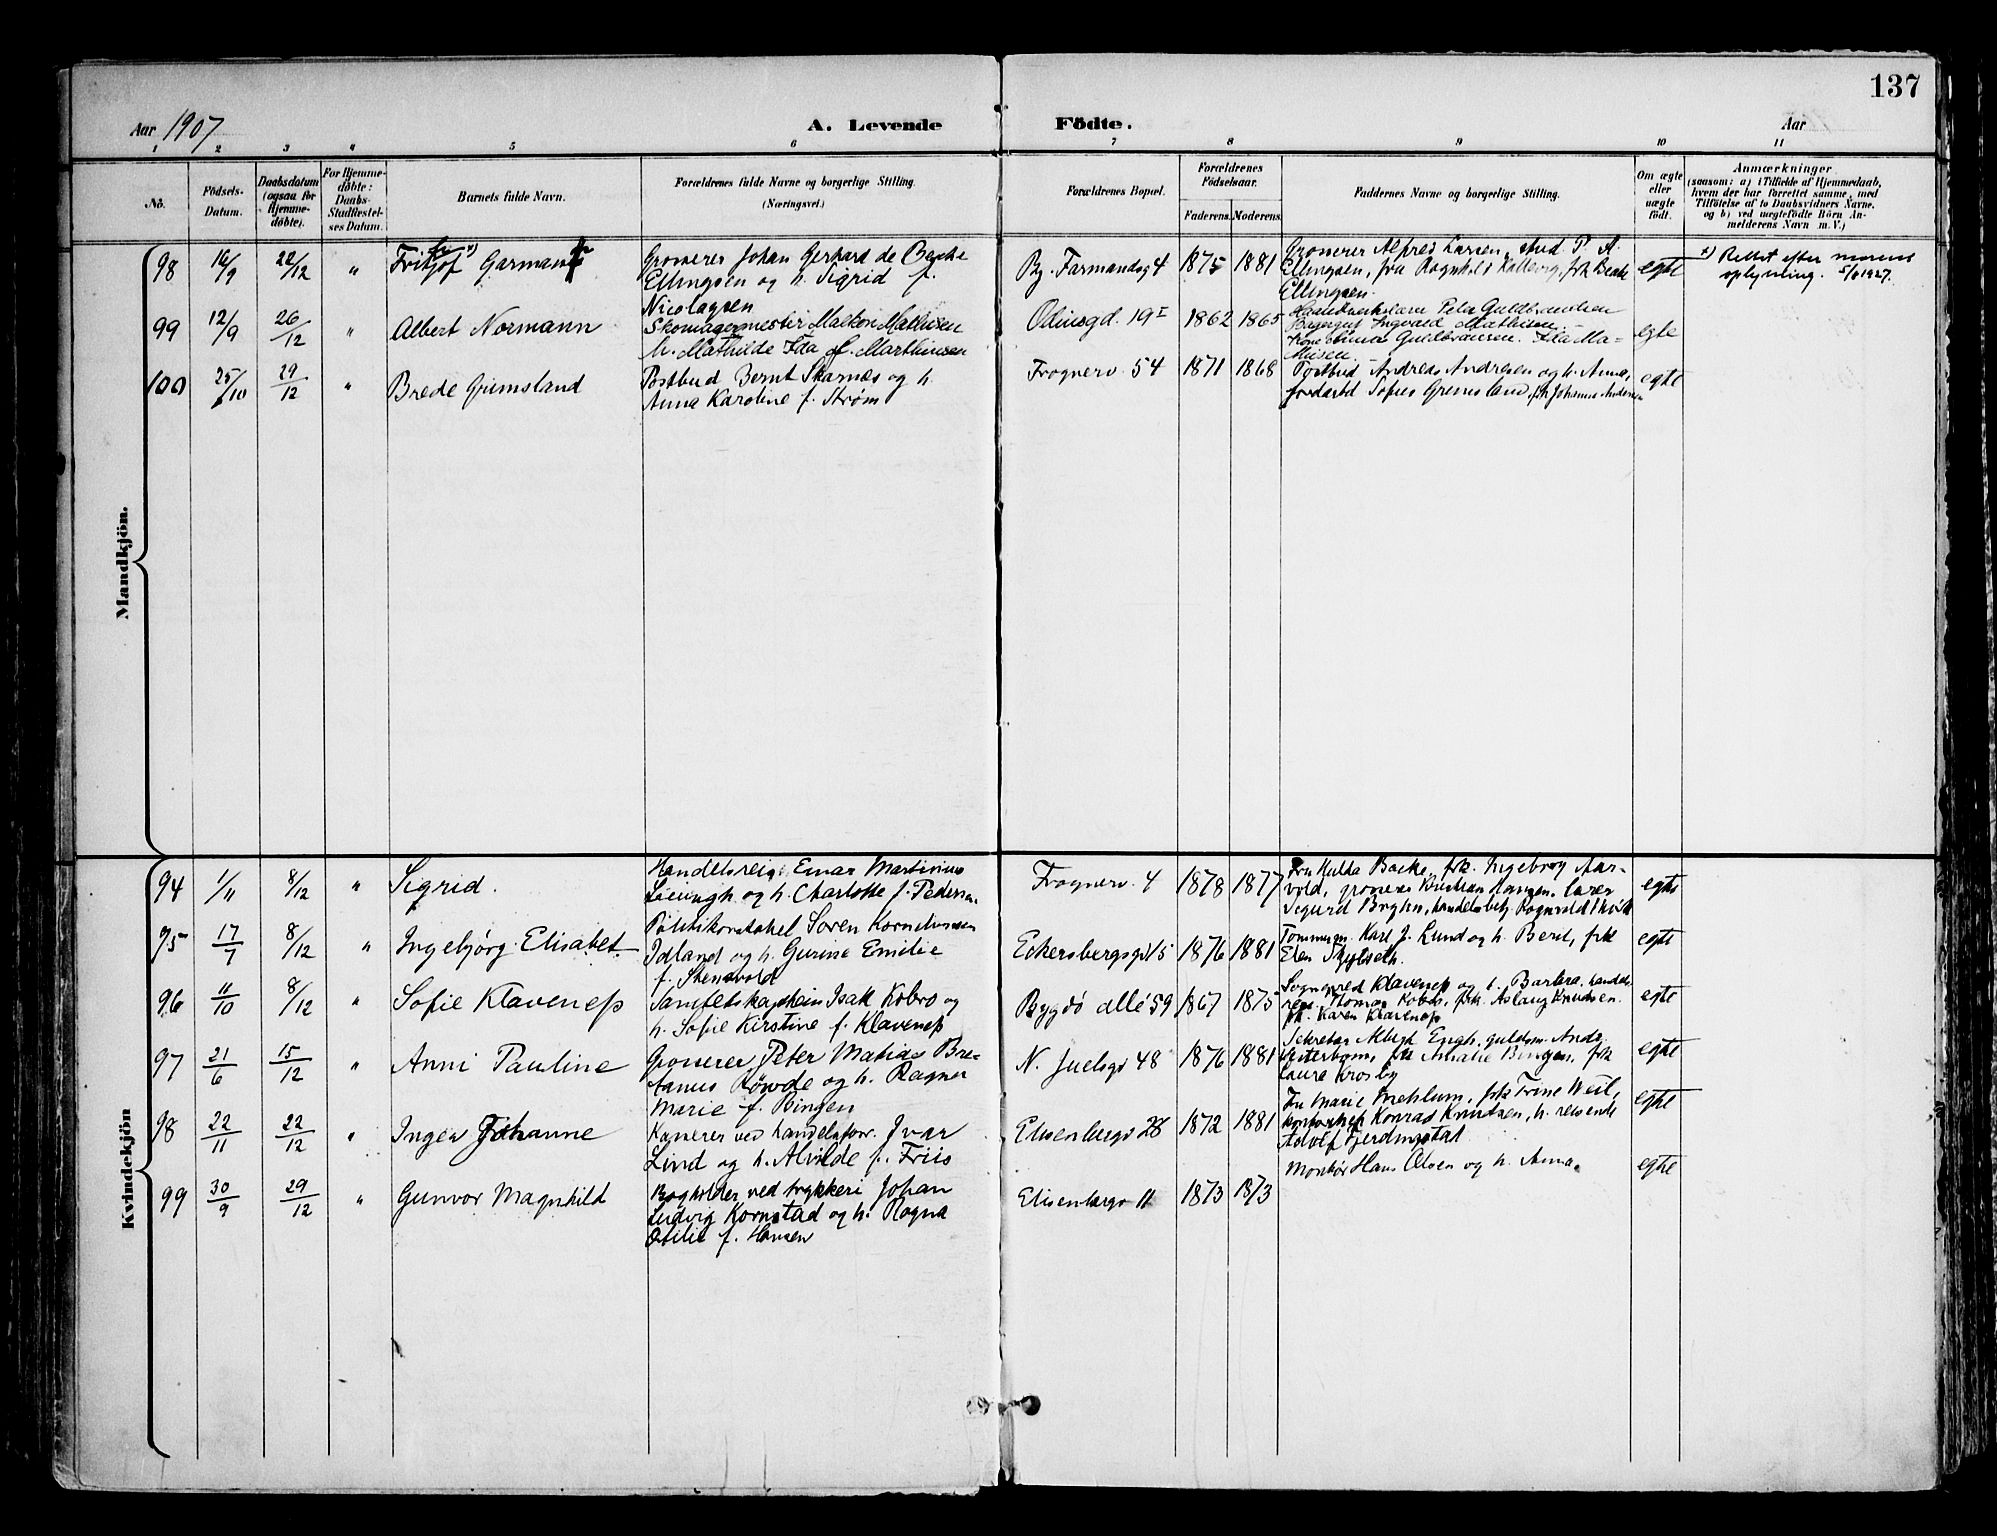 137
Aar 1907 A. Levende Födte. Aar
1 2 3 4 5 6 7 8 9 10 11
No. Födsels-Datum. Daabsdatum (ogsaa for Hjemme-döbte). For Hjemme-döbte: Daabs-Stadfæstel-ses Datum. Barnets fulde Navn. Forældrenes fulde Navne og borgerlige Stilling. (Næringsvei.) Forældrenes Bopæl. Forældrenes Födselsaar. Faderens. Moderens. Faddernes Navne og borgerlige Stilling. Om ægte eller uægte födt. Anmærkninger (saasom: a) i Tilfælde af Hjemmedaab, hvem der har forrettet samme, med Tilföielse af to Daabsvidners Navne, og b) ved uægtefödte Börn An-melderens Navn m. V.)
Mandkjön.
98 16/9 22/12 " Fritjof Garmann
Grosserer Johan Gerhard de Besche
Ellingsen og h. Sigrid f.
Nicolaysen
By. Farmandsg 4 1875 1881
Grosserer Alfred Larsen, stud P. A.
Ellingsen, fru Ragnhild Kallevig, frk Beate
Ellingsen.
egte
Rettet efter morens
oplysning. 1927.
99 12/9 26/12 " Albert Normann
Skomagermester Mathisen
h. Mathilde Ida f. Marthinsen
Odinsgd. 19 I 1862 1865
Peter Guldbrandsen
Ingvald Mathisen.
Kone Guldbransen. Ida Ma-
thisen.
egte
100 25/10 29/12 " Brede Grimsland
Postbud Bernt Skarnæs og h.
Anna Karoline f. Strøm
Frognerv. 54 1871 1868
Postbud Andreas Andresen og h. Anna,
frk Johanne Andersen
egte
Kvindekjön
94 1/11 8/12 " Sigrid.
Handelsreis. Einar Martinius
og h. Charlotte f. Pedersen.
Frognerv. 4 1878 1877
Fru Hulda Backe, frk. Ingeborg Aar-
vold, Kristian Hansen, lærer
Sigurd
egte
95 17/7 8/12 " Ingebjörg Elisabet
Politikonstabel Soren Korneliussen
Idland og h. Gurine Emilie
f. Stensvold
Eckersbergsgd 15 1876 1881
Karl J. Lund og h. Berit, frk
egte
96 11/10 8/12 " Sofie Klaveness
Isak Kobro og
h. Sofie Kirstine f. Klaveness
Bygdö allé 59 1867 1875
Sognepræst Klaveness og h. Barbra, handels-
reis. Thomas Kobro, frk. Aslaug Knudsen.
frk. Karen Klaveness
egte
97 21/6 15/12 " Anni Pauline
Grosserer Peter Matias Bre-
og h. Ragna
Marie f. Bingen
N. Juelsgd 48 1876 1881
Sekretær Engh, guldsm. Andr.
frk Amalie Bingen, frk
Laura Krosby
egte
98 22/11 22/12 " Inger Johanne
Kaserer ved handelsfor. Ivar
Lind og h. Alvilde f. Friis
Elisenbergv 28 1872 1881
Fru Marie Mehlum, frk Trine Weil,
Konrad Knutsen, h. reisende
Adolf Gjerdingstad
egte
99 30/9 29/12 " Gunvor Magnhild
Bogholder ved trykkeri Johan
Ludvig Kornstad og h. Ragna
Otilie f. Hansen
Elisenbergv 11 1873 1873
Montör Hans Olsen og h. Anna.
egte